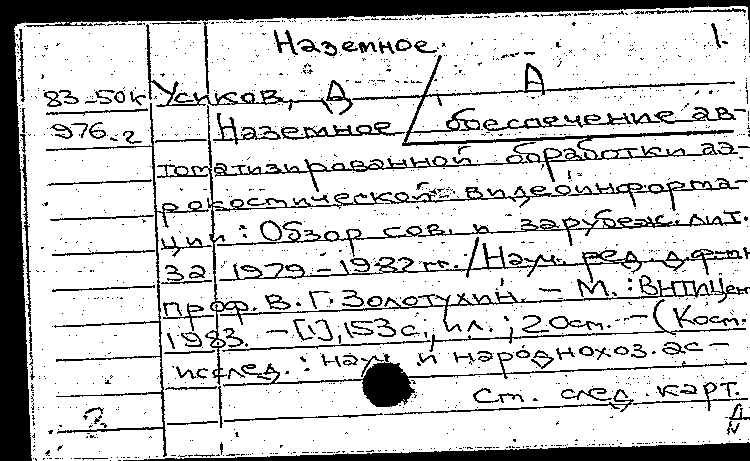 Наземное 1.
А
83-50к Усиков, Д
976-2 Наземное обеспечение ав-
томатизированной обработки аэ-
рокосмической видеоинформа-
ции: Обзор сов. и зарубеж. лит.
за 1979-1982 гг. / Науч. ред. д.ф-м.н
проф. В. Г. Золотухин. - М.: ВНТИЦен
1983. - [1], 153 с., ил.; 20 см. - (Косм.
исслед.: науч. и народнохоз. ас-
Ст. след. карт.